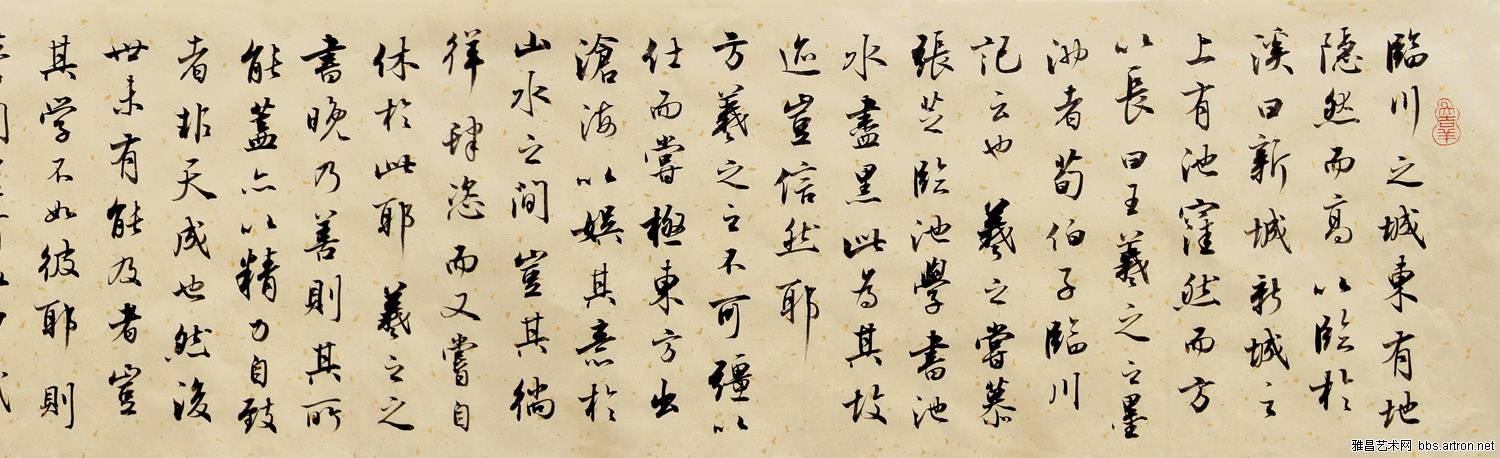 臨川之城東有地
隱然而高以臨於
溪曰新城新城之
上有池窪然而方
以長曰王羲之之墨
池者荀伯子臨川
記云也羲之嘗慕
張芝臨池學書池
水盡黑此為其故
迹豈信然耶
方羲之之不可彊以
仕而嘗極東方出
滄海以娛其意於
山水之間豈其徜
徉肆恣而又嘗自
休於此耶羲之之
書晚乃善則其所
能蓋亦以精力自致
者非天成也然後
世未有能及者豈
其学不如彼耶則
雅昌艺术网 bbs.artron.net